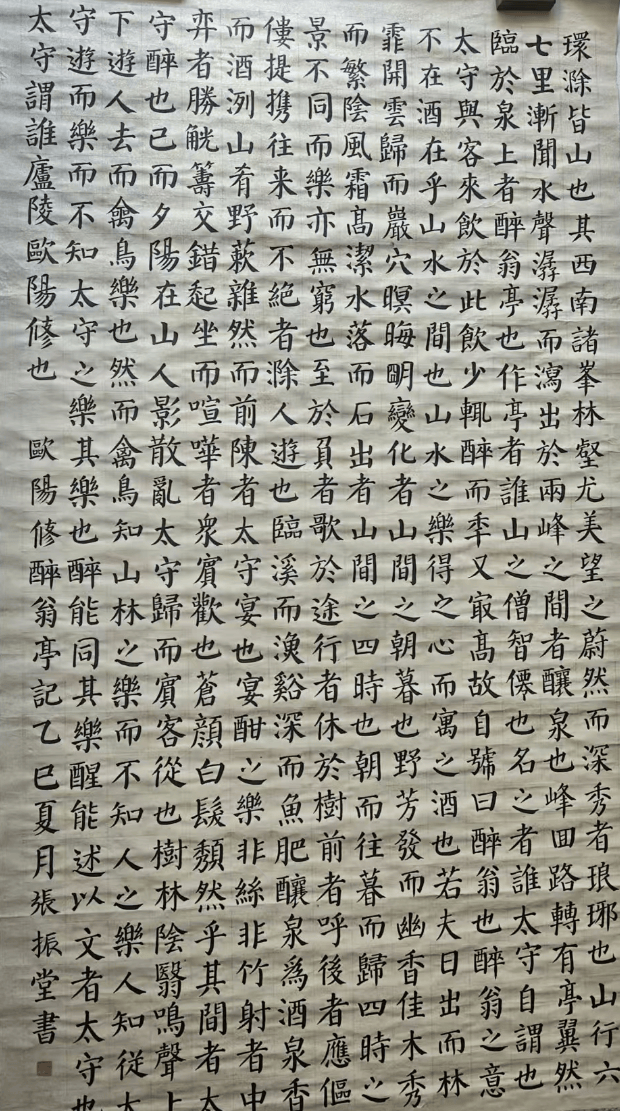 環滁皆山也其西南諸峯林壑尤美望之蔚然而深秀者琅琊也山行六
七里漸聞水聲潺潺而瀉出於兩峰之間者釀泉也峰囬路轉有亭翼然
臨於泉上者醉翁亭也作亭者誰山之僧智僊也名之者誰太守自謂也
太守與客來飲於此飲少輒醉而秊又㝡髙故自號曰醉翁也醉翁之意
不在酒在乎山水之間也山水之樂得之心而寓之酒也若夫日出而林
霏開雲歸而巖穴暝晦朙變化者山間之朝暮也野芳發而幽香佳木秀
而繁陰風霜髙潔水落而石出者山間之四時也朝而往暮而歸四時之
景不同而樂亦無窮也至於負者歌於途行者休於樹前者呼後者應傴
僂提携往来而不絕者滁人遊也臨溪而漁谿深而魚肥釀泉爲酒泉香
而酒洌山肴野蔌雜然而前陳者太守宴也宴酣之樂非絲非竹射者中
弈者勝觥籌交錯起坐而喧嘩者衆賓歡也蒼顏白髮頽然乎其間者太
守醉也已而夕陽在山人影散亂太守歸而賓客從也樹林陰翳鳴聲上
下遊人去而禽鳥樂也然而禽鳥知山林之樂而不知人之樂人知從太
守遊而樂而不知太守之樂其樂也醉能同其樂醒能述以文者太守也
太守謂誰廬陵歐陽修也 歐陽修醉翁亭記乙巳夏月張振堂書